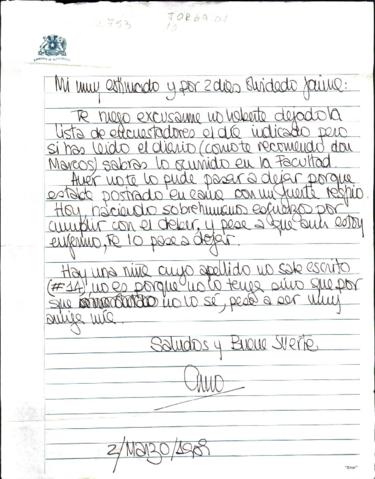 Mi muy estimado y por 2 dias olvidado Jaime:
Te ruego excusarme no haberte dejado la
lista de encuestadores el día indicado pero
si has leido el diario (como te recomendó don
Marcos) sabras lo ocurrido en la Facultad.
Ayer no te la pude pasar a dejar porque
estaba postrado en cama con un fuerte resfrio
Hoy, haciendo sobrehumanos esfuerzos por
cumplir con el deber, y pese a que aun estoy
enfermo, te lo pase a dejar.
Hay una niña cuyo apellido no sale escrito
(#14), no es porque no lo tenga sino que por
que no lo sé, pese a ser muy
amiga mía.
Saludos y Buena Suerte
2/Marzo/1989